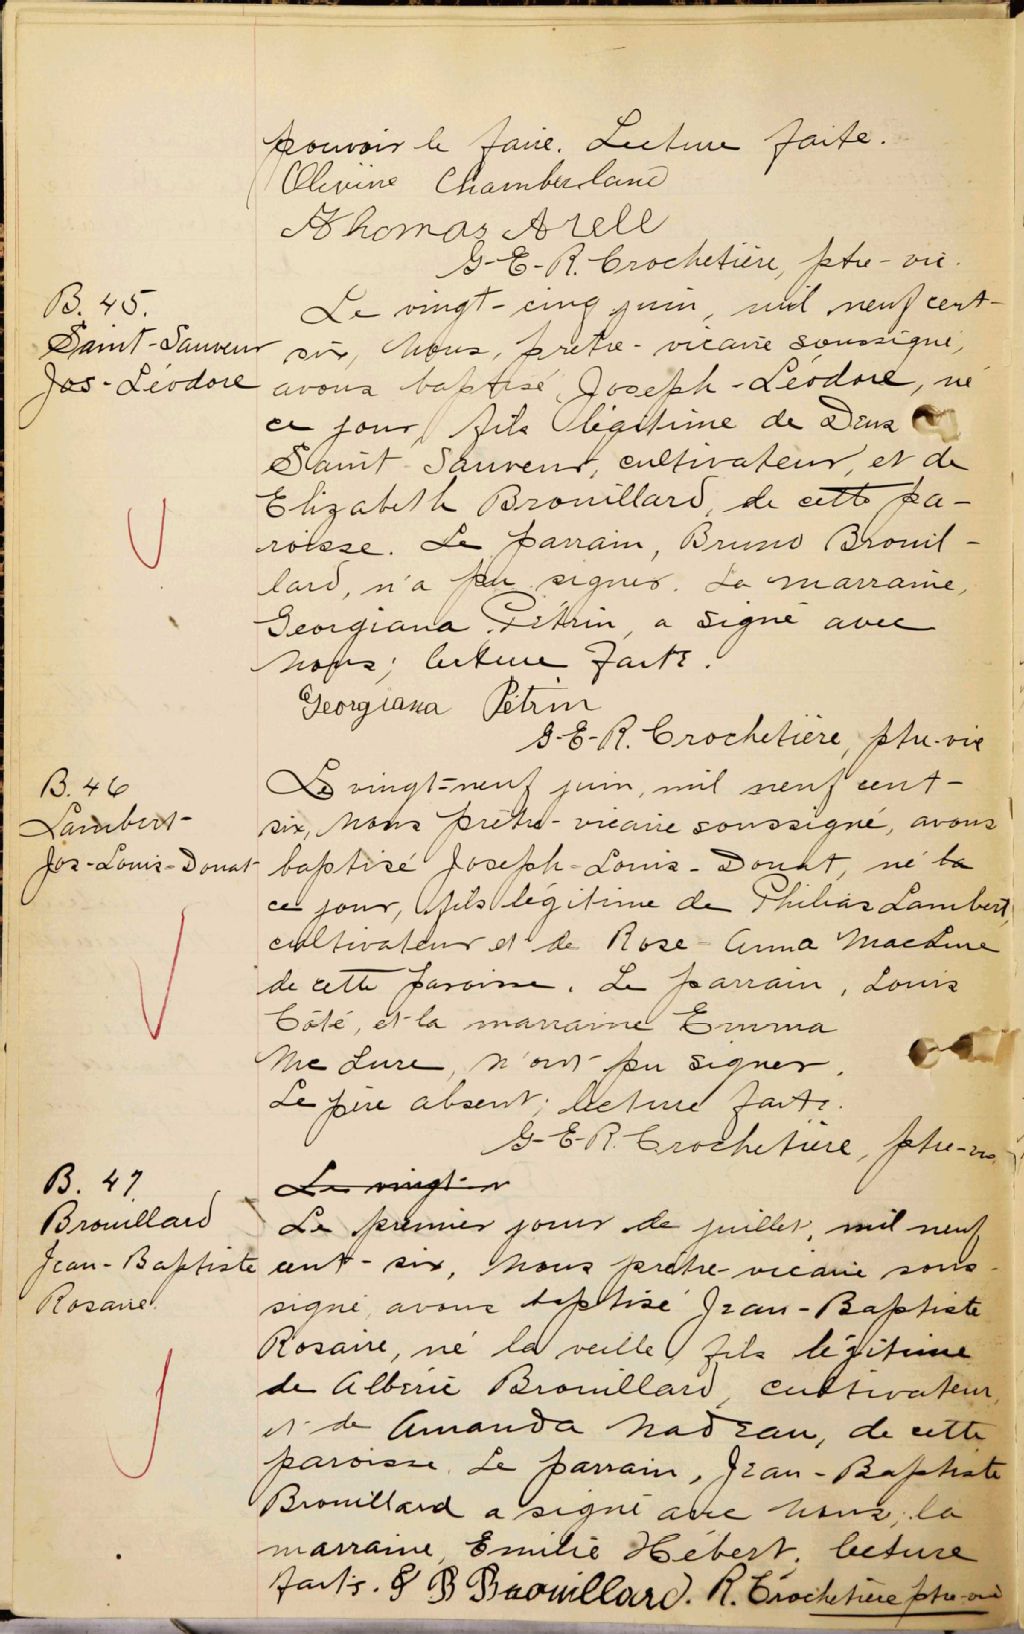 pouvoir le faire. Lecture faite.
Olivine Chamberland
Thomas Arell
G-E-R. Crochetière, ptre-vic.
B. 45.
Saint-Sauveur
Jos-Léodore
Le vingt-cinq juin, mil neuf cent-
six, nous, prêtre-vicaire soussigné,
avons baptisé Joseph-Léodore, né
ce jour, fils légitime de Deus
Saint-Sauveur, cultivateur, et de
Elizabeth Brouillard, de cette pa-
roisse. Le parrain, Bruno Brouil-
lard, n'a pu signer. La marraine,
Georgiana Pétrin, a signé avec
nous; lecture faite.
Georgiana Pétrin
G-E-R. Crochetière, ptre-vic
B. 46
Lambert-
Jos-Louis-Donat
Le vingt-neuf juin, mil neuf cent-
six, nous prêtre-vicaire soussigné, avons
baptisé Joseph-Louis-Donat, né la
ce jour, fils légitime de Philias Lambert,
cultivateur et de Rose-Anna MacLure
de cette paroisse. Le parrain, Louis
Côté, et la marraine Emma
McLure, n'ont pu signer.
Le père absent; lecture faite.
G-E-R. Crochetière, ptre-vic
B. 47
Brouillard
Jean-Baptiste
Rosaire.
Le vingt-n
Le premier jour de juillet, mil neuf
cent-six, nous prêtre-vicaire sous-
signé, avons baptisé Jean-Baptiste
Rosaire, né la veille, fils légitime
de Albéric Brouillard, cultivateur,
et de Amanda Nadeau, de cette
paroisse. Le parrain, Jean-Baptiste
Brouillard a signé avec nous; la
marraine, Emilie Hébert. lecture
faite. J B Brouillard. R. Crochetière ptre-vic